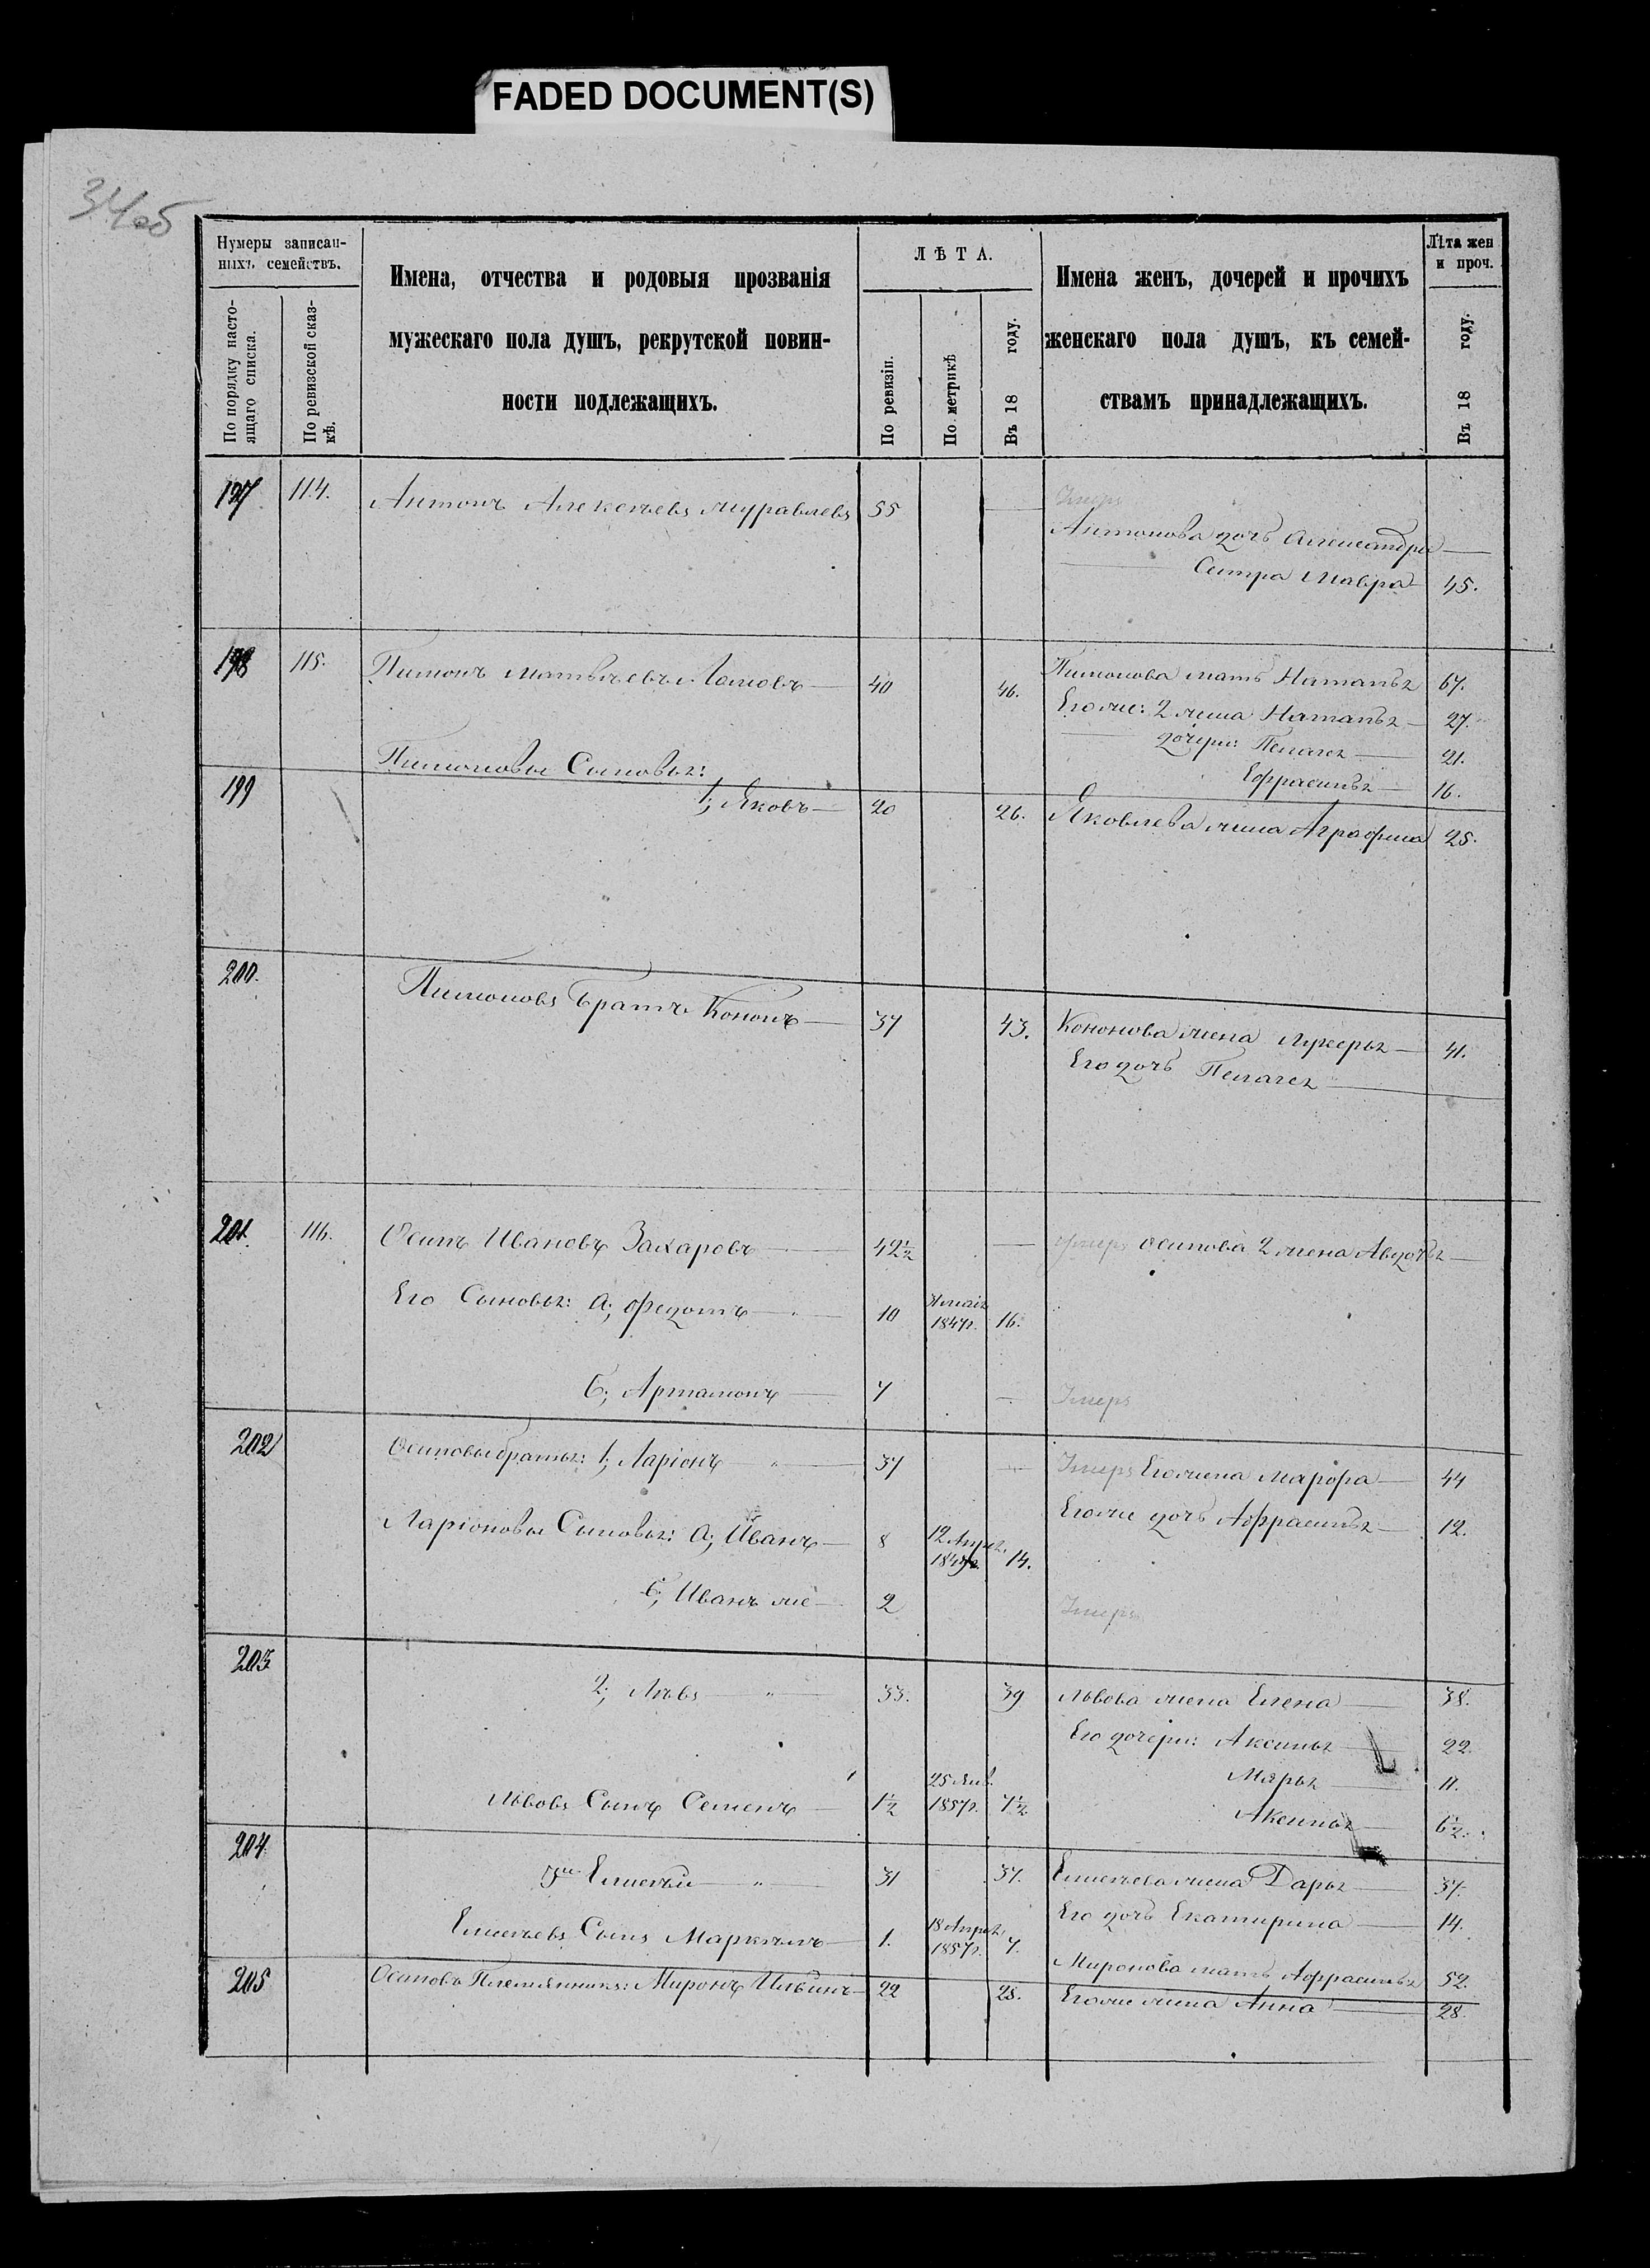 FADED DOCUMENT(S)
34об
Нумеры записан-
ныхъ семействъ.
По порядку насто-
ящаго списка.
По ревизской сказ-
кѣ.
Имена, отчества и родовыя прозванія
мужескаго пола душъ, рекрутской повин-
ности подлежащихъ.
ЛѢТА.
По ревизіи.
По метрикѣ
Въ 18 году.
Имена женъ, дочерей и прочихъ
женскаго пола душъ, къ семей-
ствамъ принадлежащихъ.
Лѣта жен
и проч.
Въ 18 году.
197 114. Антонъ Алексѣевъ Муравлевъ 55 — Умеръ
Антонова дочь Александра —
Сестра Мавра 45.
198 115. Пимонъ Матвѣевъ 40 46. Пимонова мать Наталья 67.
Его же: 2 жена Наталья 27.
дочери: Пелагея 21.
Ефрасинья 16.
Пимоновы Сыновья:
199 1; Яковъ 20 26. Яковлева жена Аграфина 25.
200. Пимоновъ братъ Кононъ 37 43. Кононова жена Лукерья 41.
Его дочь Пелагея —
201. 116. Осипъ Ивановъ Захаровъ 42½ — умеръ Осипова 2 жена Авдотья —
Его Сыновья: а; Федотъ 10 1847г. 16.
б; Артамонъ 7 — Умеръ
202 Осиповы братья: 1; Ларіонъ 37 — Умеръ Его жена Марфа 44
Его же дочь Афрасинья 12.
Ларіоновы Сыновья: а; Иванъ 8 12 Апрѣл. 14.
б; Иванъ же 2 Умеръ
203 2; Левъ 33. 39 Львова жена Елена 38.
Его дочери: Аксинья 22.
Марья 11.
Львовъ Сынъ Семенъ 1½ 25 Янв. 1857г. 7½
Аксинья 6½.
204 3й Елисей 31 37. Елисеева жена Дарья 37.
Его дочь Екатирина 14.
Елисеевъ Сынъ Маркелъ 1. 18 Апрѣл. 1857г. 7.
Миронова мать Афрасинья 52.
205 Осиповъ Племянникъ: Миронъ Ильинъ 22 28. Его же жена Анна 28.